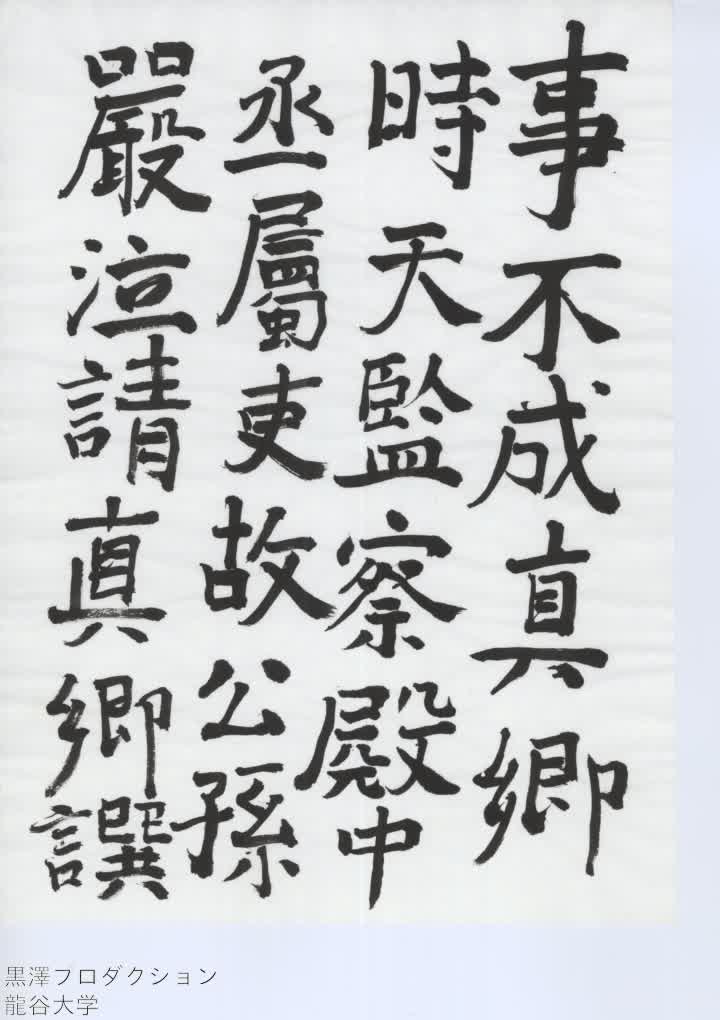 事不成真卿
時天監察殿中
丞屬吏故公孫
嚴泣請真卿譔
黒澤プロダクション
龍谷大学